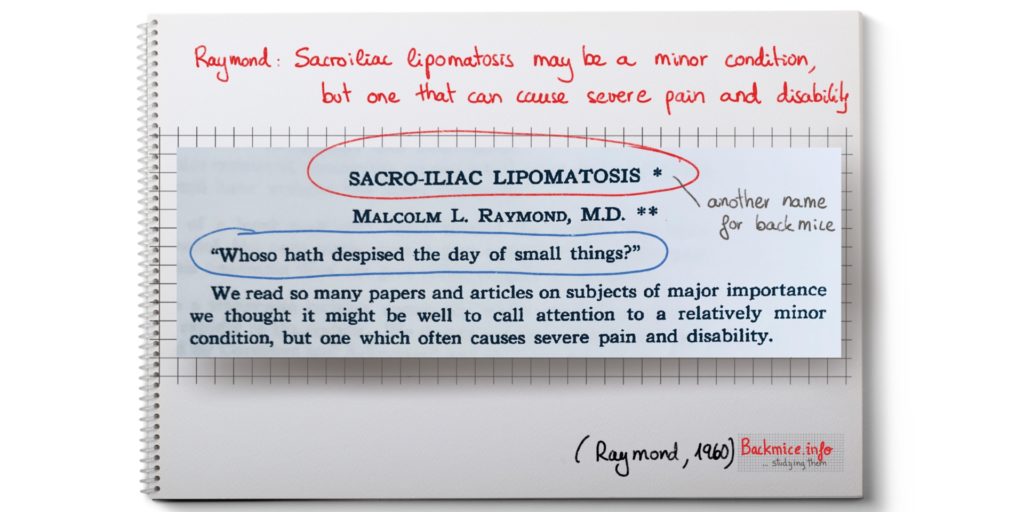 Raymond: Sacroiliac lipomatosis may be a minor condition,
but one that can cause severe pain and disability
SACRO-ILIAC LIPOMATOSIS *
another name
for backmice
MALCOLM L. RAYMOND, M.D. **
"Whoso hath despised the day of small things?"
We read so many papers and articles on subjects of major importance
we thought it might be well to call attention to a relatively minor
condition, but one which often causes severe pain and disability.
(Raymond, 1960)
Backmice.info
... studying them